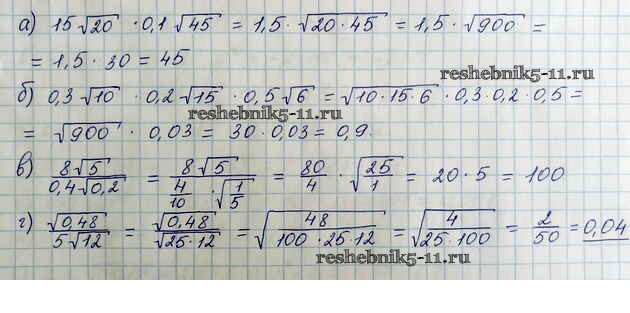 а) 15√20 · 0,1√45 = 1,5 · √(20·45) = 1,5 · √900 =
= 1,5 · 30 = 45
reshebnik5-11.ru
б) 0,3√10 · 0,2√15 · 0,5√6 = √(10·15·6) · 0,3·0,2·0,5 =
reshebnik5-11.ru
= √900 · 0,03 = 30 · 0,03 = 0,9.
в) 8√5 / 0,4√0,2 = 8√5 / (4/10 · √(1/5)) = 80/4 · √(25/1) = 20 · 5 = 100
г) √0,48 / 5√12 = √0,48 / √(25·12) = √(48 / (100·25·12)) = √(4 / (25·100)) = 2/50 = 0,04
reshebnik5-11.ru